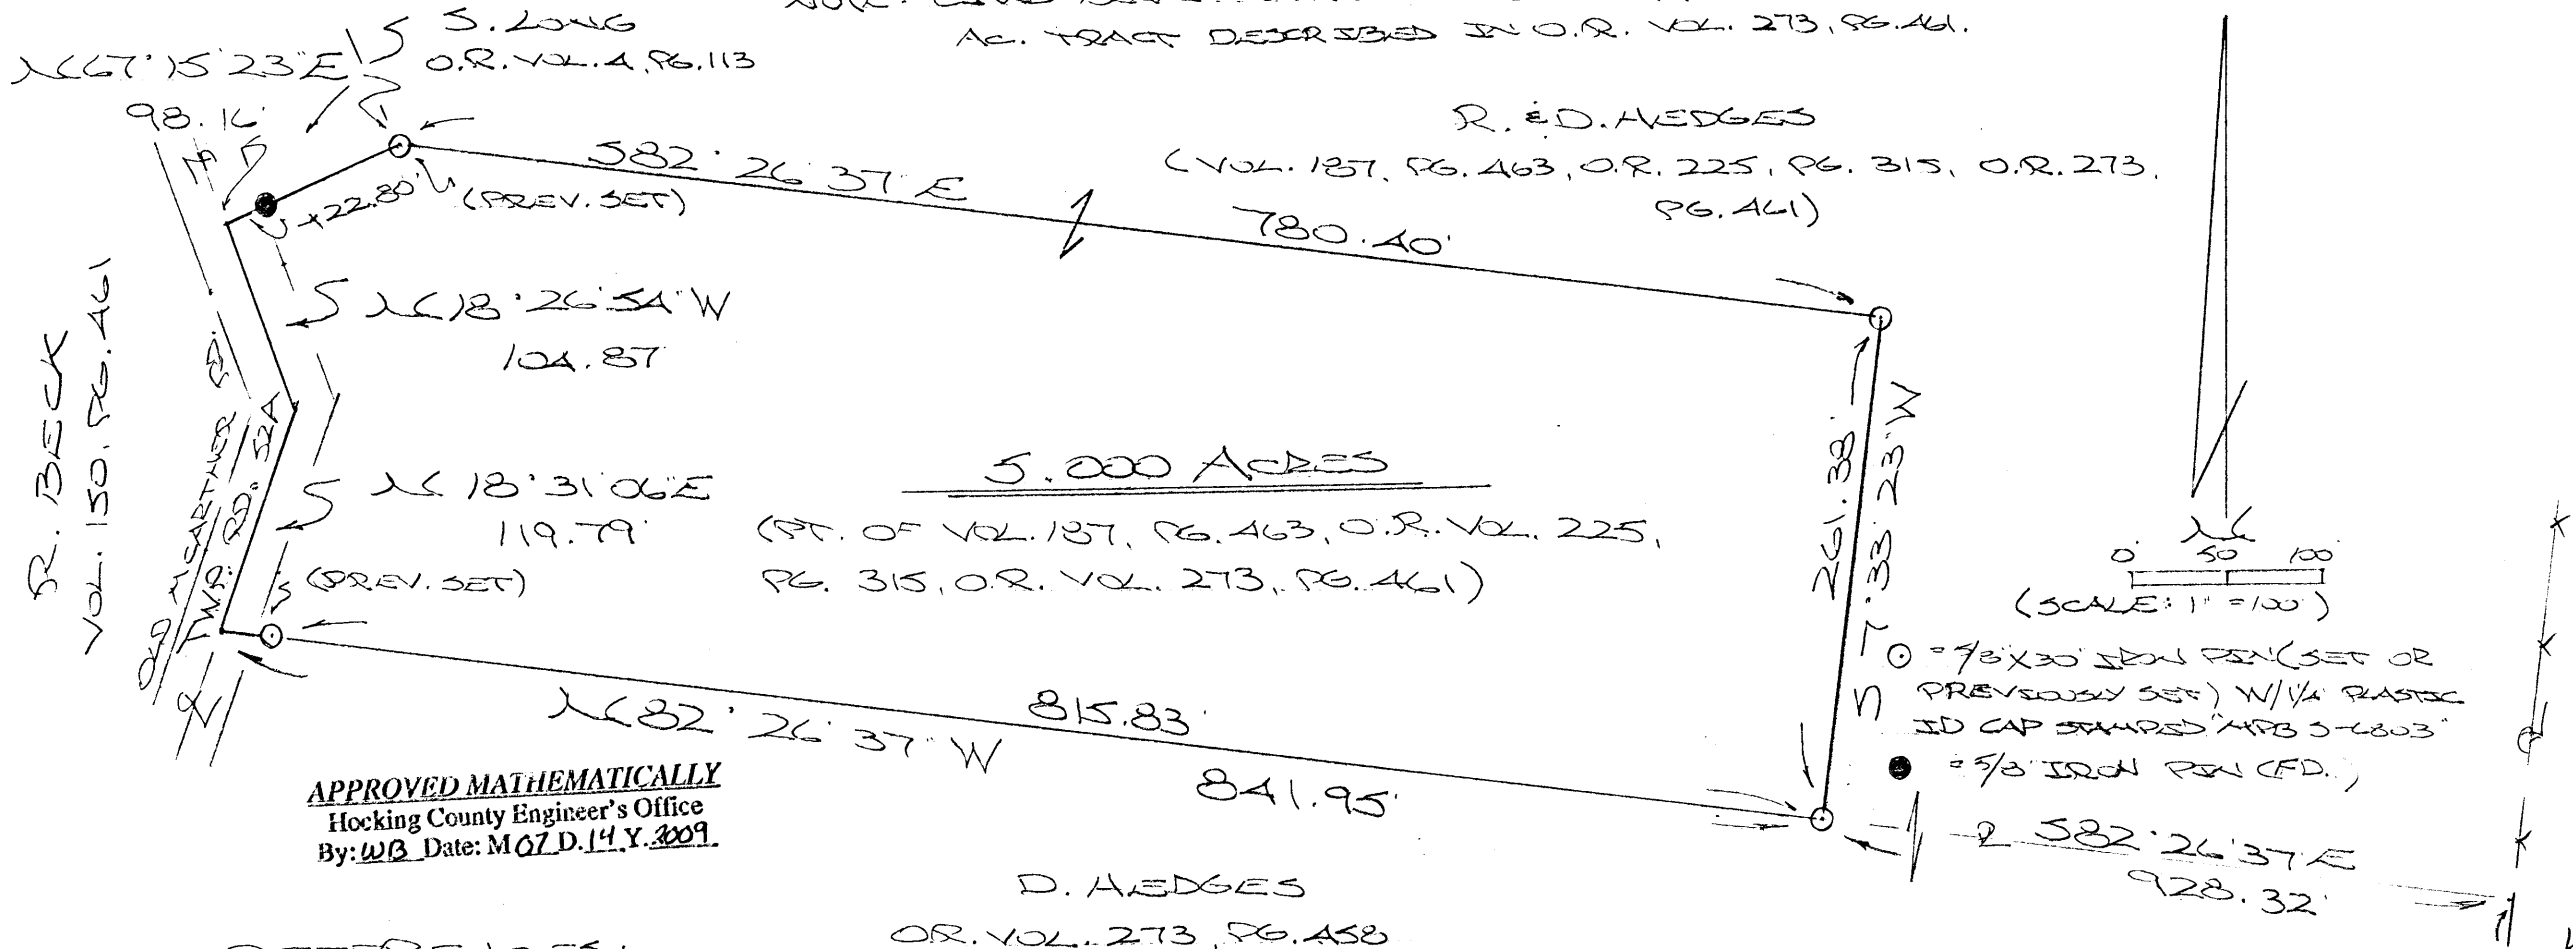 AC. TRACT DESCRIBED IN O.R. VOL. 273, PG. 461.
S. LONG
O.R. VOL. 4, PG. 113
N 67° 15' 23" E
98.16'
R. & D. HEDGES
(VOL. 187, PG. 463, O.R. 225, PG. 315, O.R. 273,
PG. 461)
S 82° 26' 37" E
780.40'
22.80'
(PREV. SET)
R. BECK
VOL. 150, PG. 461
N 18° 26' 54" W
104.87
OLD McARTHUR RD.
TWP. RD. 52A
N 18° 31' 06" E
119.79'
(PREV. SET)
5.000 ACRES
(PT. OF VOL. 187, PG. 463, O.R. VOL. 225,
PG. 315, O.R. VOL. 273, PG. 461)
261.38'
S 7° 33' 23" W
N
0' 50 100'
(SCALE: 1" = 100')
= 5/8" X 30" IRON PIN (SET OR
PREVIOUSLY SET) W/ 1 1/4" PLASTIC
ID CAP STAMPED "MPB S-6803"
= 5/8" IRON PIN (FD.)
N 82° 26' 37" W
815.83'
841.95'
S 82° 26' 37" E
928.32'
APPROVED MATHEMATICALLY
Hocking County Engineer's Office
By: WB Date: M 07 D. 14 Y. 2009
D. HEDGES
OR. VOL. 273, PG. 458